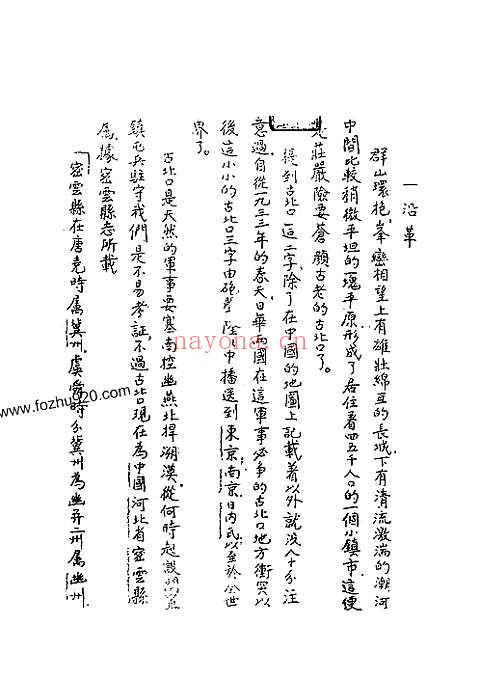 一 沿革
群山環抱，峯巒相望上有雄壯綿亙的長城，下有清流激湍的潮河
中間比較稍微平坦的一塊平原，形成了居住着四五千人口的一個小鎮市，這便
是莊嚴險要蒼顏古老的古北口了。
提到古北口這三字，除了在中國的地圖上記載着以外就沒人十分注
意過，自從一九三三年的春天日華兩國在這軍事必爭的古北口地方衝突以
後這小小的古北口三字由砲聲隆隆中播送到東京，南京，日內瓦以至於全世
界了。
古北口是天然的軍事要塞南控幽燕北捍朔漠，從何時起設關置
鎮屯兵駐守我們是不易考証，不過古北口現在為中國河北省密雲縣
屬，據密雲縣志所載
「密雲縣在唐堯時屬冀州，虞舜時分冀州為幽并二州屬幽州
www.fozhu920.com
nayona.cn